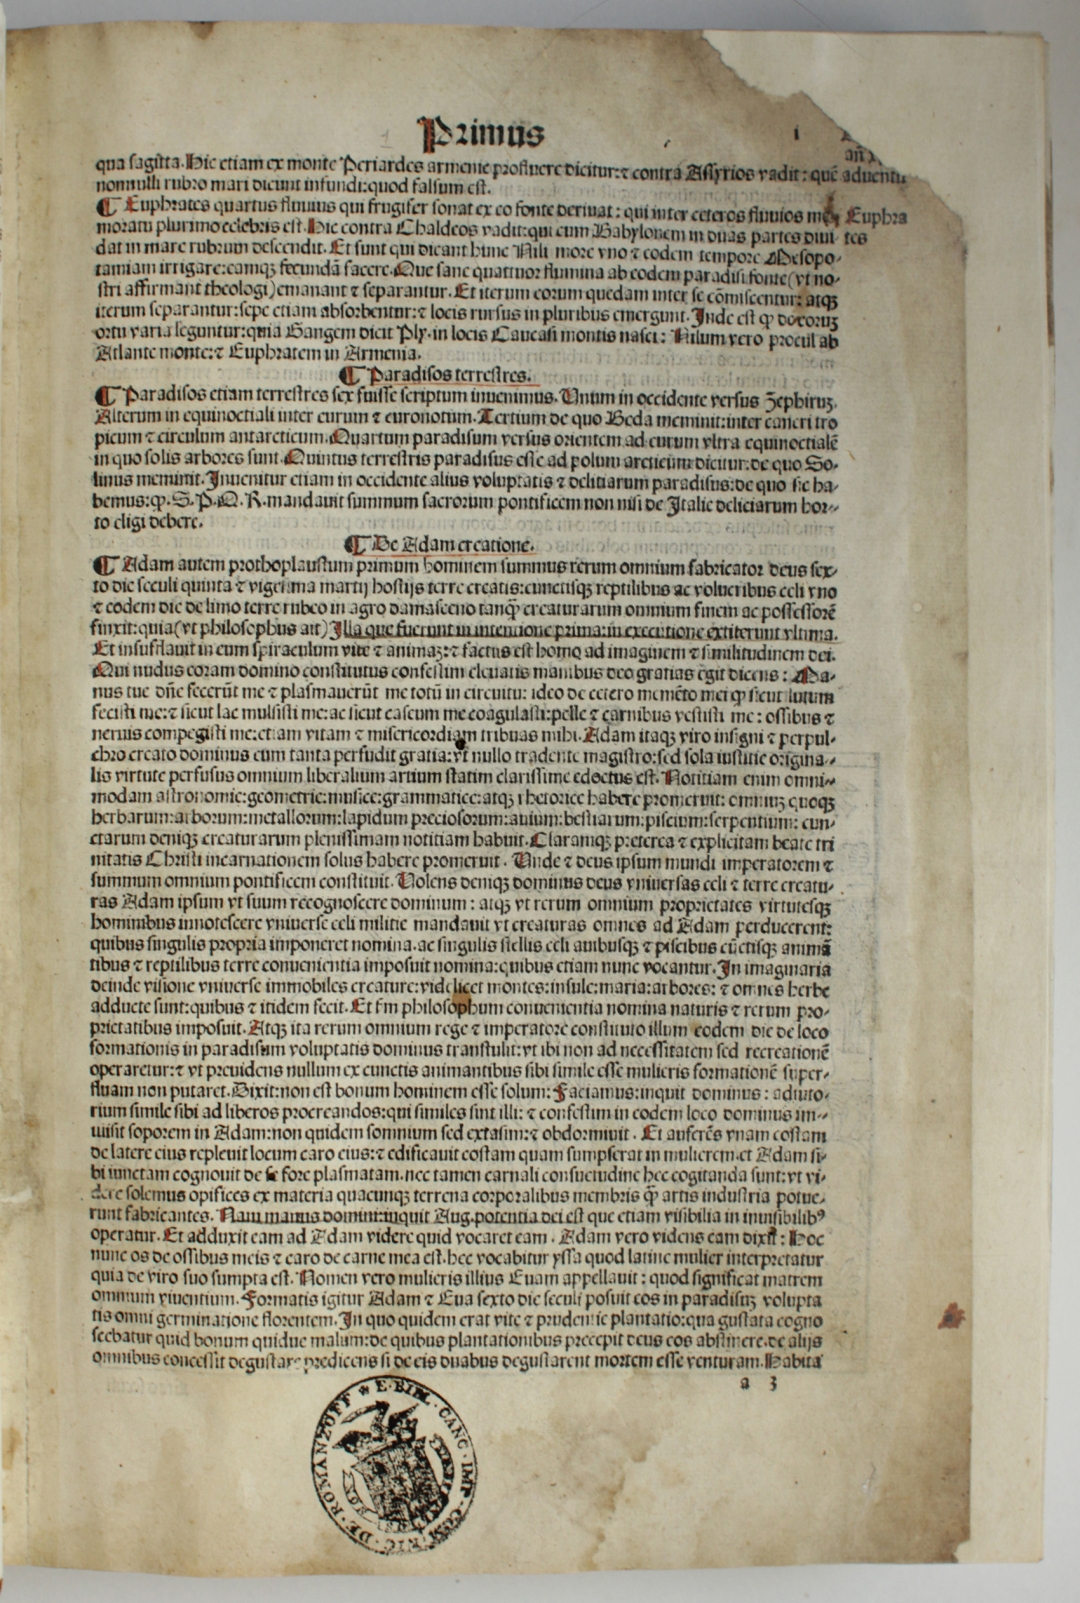 Primus
1
i
añ
aduentu
qua sagitta. Hic etiam ex monte Periardes armenie profluere dicitur: ⁊ contra Assyrios vadit: quē
nonnulli rubro mari dicunt infundi: quod falsum est.
¶ Euphrates quartus fluuius qui frugifer sonat ex eo fonte deriuat: qui inter ceteros fluuios me-
Euphra
tes
moratu plurimo celebris est. Hic contra Chaldeos vadit: qui cum Babylonem in duas partes diui-
dat in mare rubrum descendit. Et sunt qui dicant hunc Nili more vno ⁊ eodem tempore Mesopo-
tamiam irrigare: eamqꝫ fecundā facere. Que sane quattuor flumina ab eodem paradisi fonte (vt no-
stri affirmant theologi) emanant ⁊ separantur. Et iterum eorum quedam inter se cōmiscentur: atqꝫ
iterum separantur: sepe etiam absorbentur: ⁊ locis rursus in pluribus emergunt. Inde est ꝙ de eoruꝫ
ortu varia leguntur: quia Gangem dicit Ply. in locis Caucasi montis nasci: Nilum vero procul ab
Atlante monte: ⁊ Euphratem in Armenia.
¶ Paradisos terrestres.
¶ Paradisos etiam terrestres sex fuisse scriptum inuenimus. Unum in occidente versus Zephiruꝫ.
Alterum in equinoctiali inter eurum ⁊ euronotum. Tertium de quo Beda meminit: inter cancri tro
picum ⁊ circulum antarcticum. Quartum paradisum versus orientem ad eurum vltra equinoctialē
in quo solis arbores sunt. Quintus terrestris paradisus esse ad polum arcticum dicitur: de quo So-
linus meminit. Inuenitur etiam in occidente alius voluptatis ⁊ delitiarum paradisus: de quo sic ha-
bemus: ꝙ. S. P. Q. R. mandauit summum sacrorum pontificem non nisi de Italie deliciarum hor-
to eligi debere.
¶ De Adam creatione.
¶ Adam autem prothoplaustum primum hominem summus rerum omnium fabricator deus sex-
to die seculi quinta ⁊ vigesima martij hostijs terre creatis: cunctisqꝫ reptilibus ac volucribus celi vno
⁊ eodem die de limo terre rubeo in agro damasceno tanqꝫ̄ creaturarum omnium finem ac possessorē
finxit: quia (vt philosophus ait) Illa que fuerunt in intentione prima: in executione extiterunt vltima.
Et insufflauit in eum spiraculum vite ⁊ animaꝫ: ⁊ factus est homo ad imaginem ⁊ similitudinem dei.
Qui nudus coram domino constitutus confestim eleuatis manibus deo gratias egit dicens: Ma-
nus tue dn̄e fecerūt me ⁊ plasmauerūt me totū in circuitu: ideo de cetero memēto mei ꝙ sicut lutum
fecisti me: ⁊ sicut lac mulsisti me: ac sicut caseum me coagulasti: pelle ⁊ carnibus vestisti me: ossibus ⁊
neruis compegisti me: etiam vitam ⁊ misericordiam tribuas mihi. Adam itaqꝫ viro insigni ⁊ perpul-
chro creato dominus eum tanta perfudit gratia: vt nullo tradente magistro: sed sola iustitie origina-
lis virtute perfusus omnium liberalium artium statim clarissime edoctus est. Notitiam enim omni-
modam astronomie: geometrie: musice: grammatice: atqꝫ rhetorice habere promeruit: omniuꝫ quoqꝫ
herbarum: arborum: metallorum: lapidum preciosorum: auium: bestiarum: piscium: serpentium: cun-
ctarum deniqꝫ creaturarum plenissimam notitiam habuit. Claramqꝫ preterea ⁊ explicitam beate tri
nitatis Christi incarnationem solus habere promeruit. Unde ⁊ deus ipsum mundi imperatorem ⁊
summum omnium pontificem constituit. Volens deniqꝫ dominus deus vniuersas celi ⁊ terre creatu-
ras Adam ipsum vt suum recognoscere dominum: atqꝫ vt rerum omnium proprietates virtutesqꝫ
hominibus innotescere vniuerse celi militie mandauit vt creaturas omnes ad Adam perducerent:
quibus singulis propria imponeret nomina. ac singulis stellis celi auibusqꝫ ⁊ piscibus cūctisqꝫ animā
tibus ⁊ reptilibus terre conuenientia imposuit nomina: quibus etiam nunc vocantur. In imaginaria
deinde visione vniuerse immobiles creature: videlicet montes: insule: maria: arbores: ⁊ omnes herbe
adducte sunt: quibus ⁊ itidem fecit. Et s̄m philosophum conuenientia nomina naturis ⁊ rerum pro-
prietatibus imposuit. Atqꝫ ita rerum omnium rege ⁊ imperatore constituto illum eodem die de loco
formationis in paradisum voluptatis dominus transtulit: vt ibi non ad necessitatem sed recreationē
operaretur: ⁊ vt preuidens nullum ex cunctis animantibus sibi simile esse mulieris formationē super-
fluam non putaret. Dixit: non est bonum hominem esse solum: Faciamus: inquit dominus: adiuto-
rium simile sibi ad liberos procreandos: qui similes sint illi: ⁊ confestim in eodem loco dominus im-
misit soporem in Adam: non quidem somnium sed extasim: ⁊ obdormiuit. Et auferēs vnam costam
de latere eius repleuit locum caro eius: ⁊ edificauit costam quam sumpserat in mulierem. et Adam si-
bi iunctam cognouit de se fore plasmatam. nec tamen carnali consuetudine hec cogitanda sunt: vt vi-
dere solemus opifices ex materia quacunqꝫ terrena corporalibus membris qꝫ̄ artis industria potue-
runt fabricantes. Nam manus domini: inquit Aug. potentia dei est que etiam visibilia in inuisibilibꝰ
operatur. Et adduxit eam ad Adam videre quid vocaret eam. Adam vero videns eam dixit: Hoc
nunc os de ossibus meis ⁊ caro de carne mea est. hec vocabitur yssa quod latine mulier interpretatur
quia de viro suo sumpta est. Nomen vero mulieris illius Euam appellauit: quod significat matrem
omnium viuentium. Formatis igitur Adam ⁊ Eua sexto die seculi posuit eos in paradisuꝫ volupta
tis omni germinatione florentem. In quo quidem erat vite ⁊ prudentie plantatio: qua gustata cogno
scebatur quid bonum quidue malum: de quibus plantationibus precepit deus eos abstinere. de alijs
omnibus concessit degustare predicens si de eis duabus degustarent mortem esse venturam. Habita
a 3
E · BIBL · CANC · IMP · COM · NIC · DE · ROMANZOFF